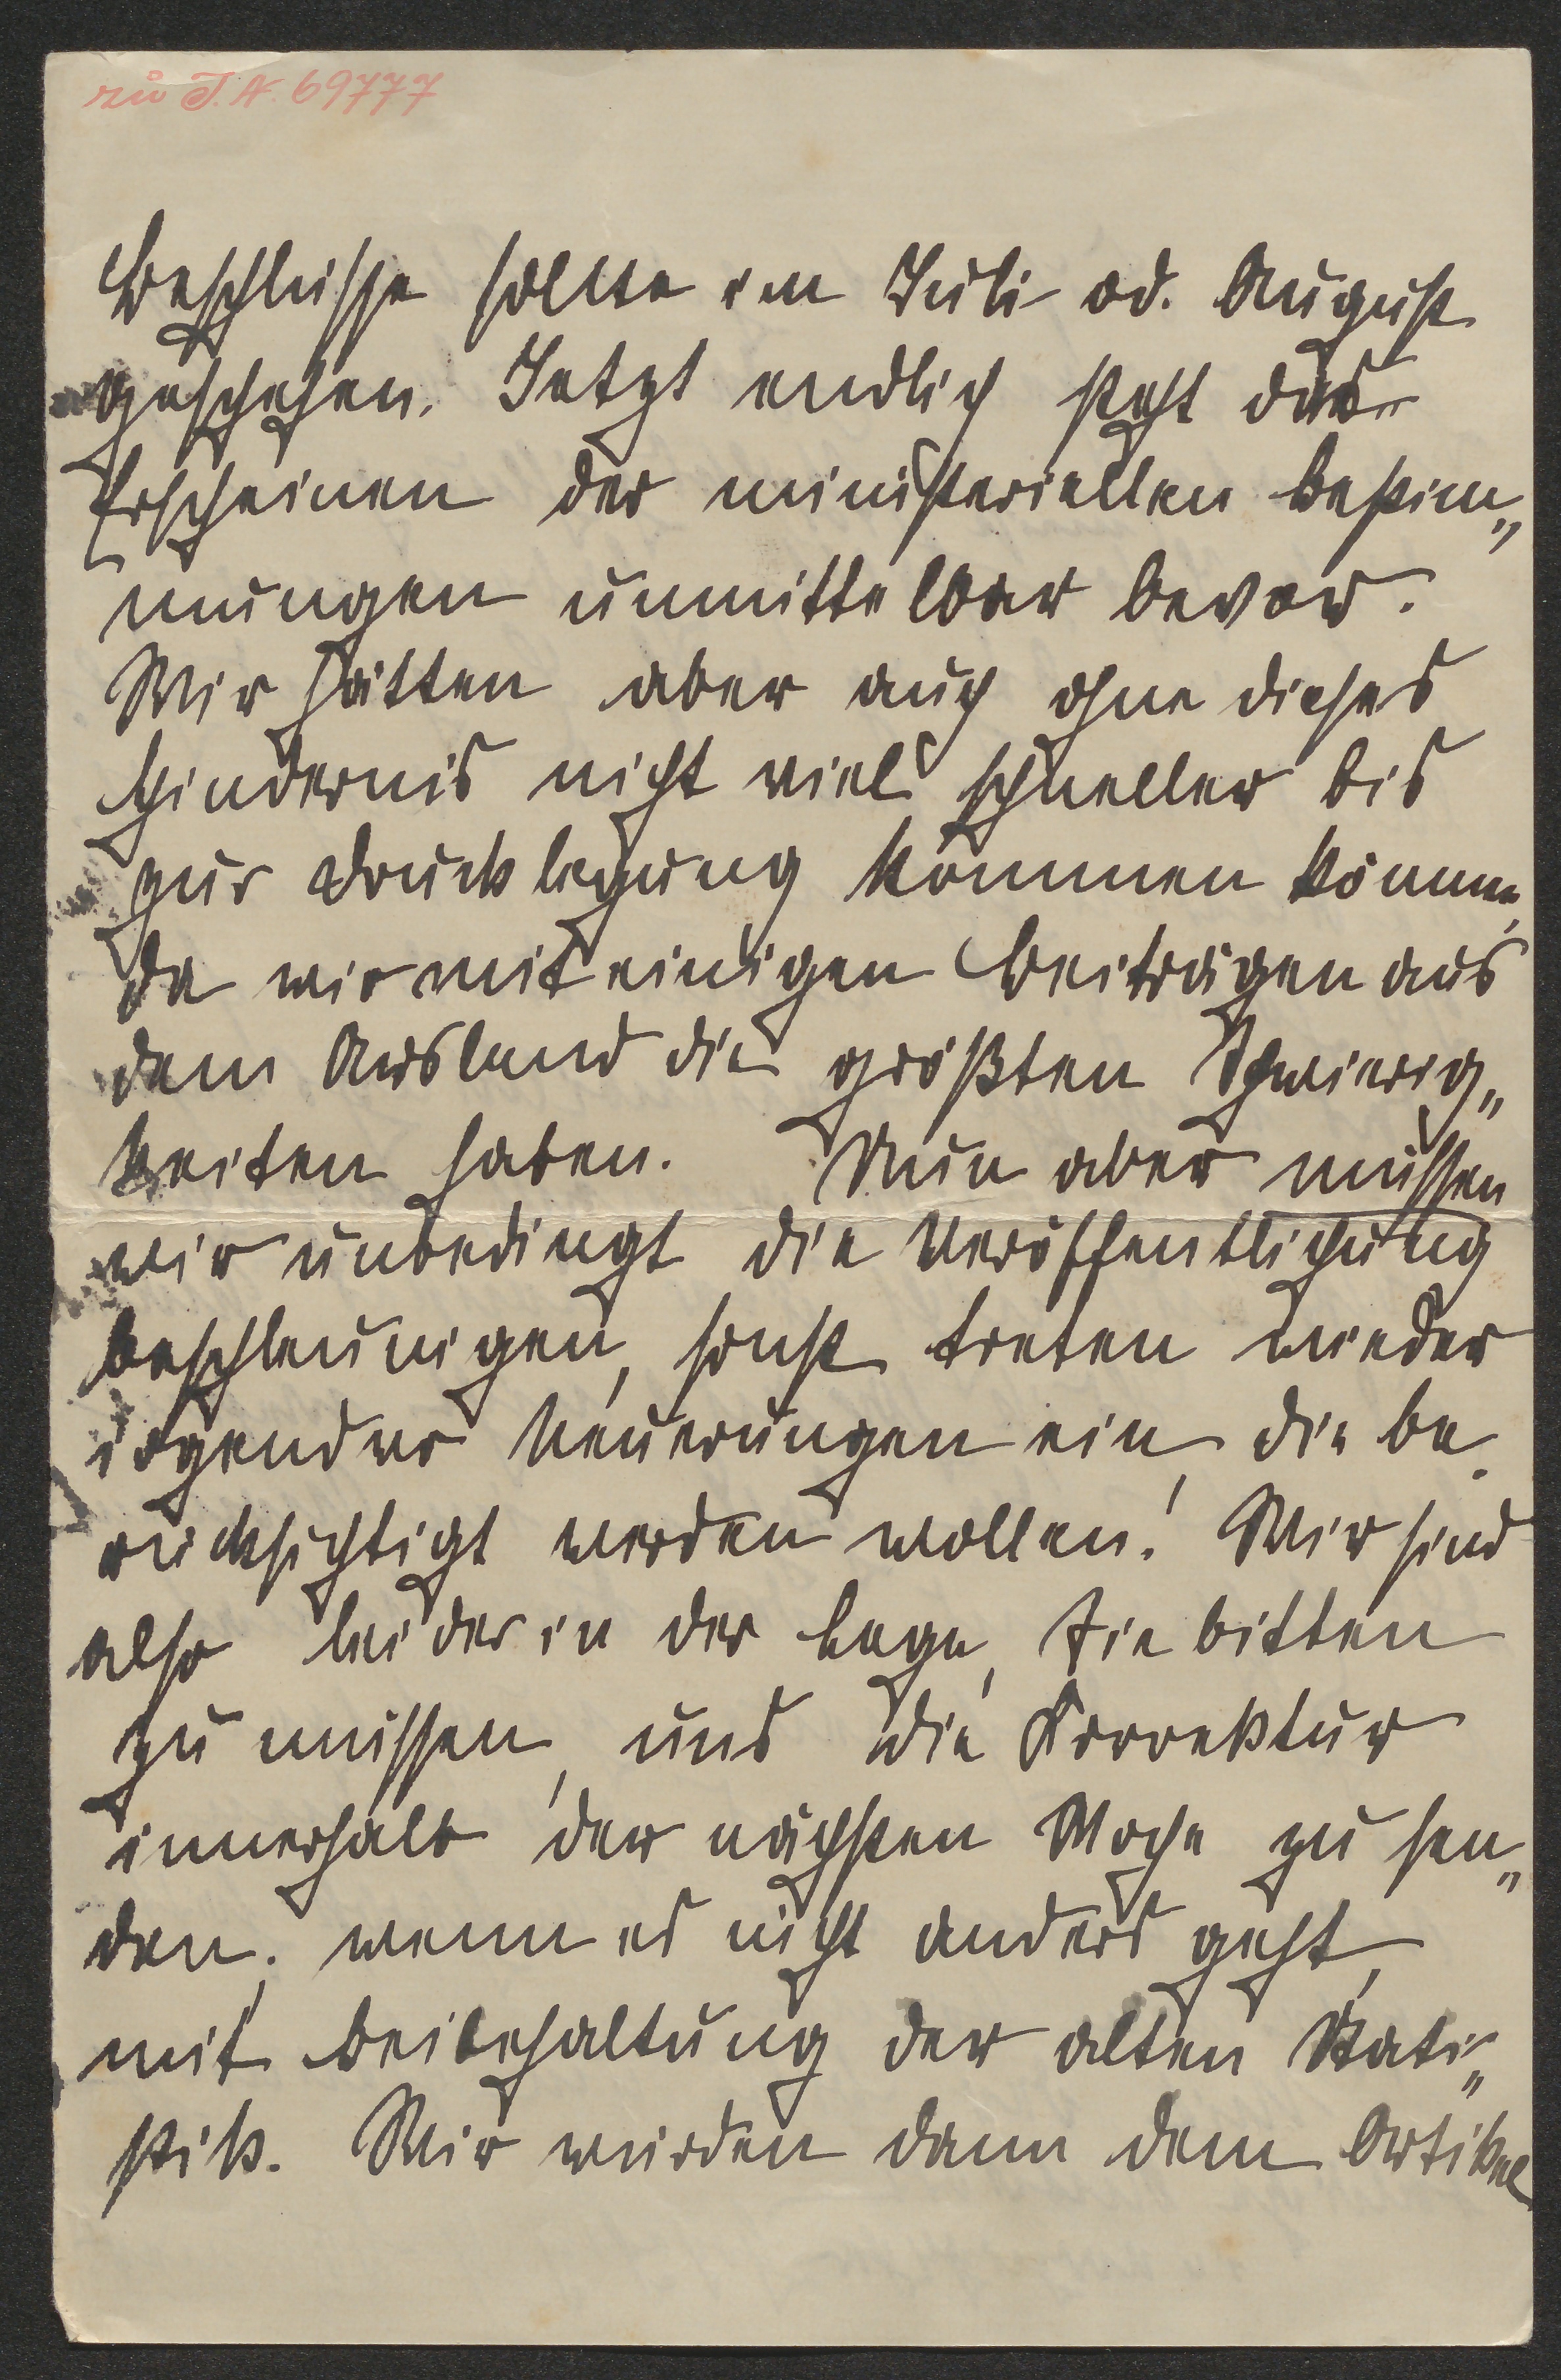 zu I.N. 69777
Beschlüsse sollte im Juli od. August
geschehen. Jetzt endlich steht das
Erscheinen der ministeriellen Bestim„
mungen unmittelbar bevor.
Wir hätten aber auch ohne dieses
Hindernis nicht viel schneller bis
zur Drucklegung kommen können,
da wir mit einigen Beiträgen aus
dem Ausland die größten Schwierig„
keiten haben. Nun aber müssen
wir unbedingt die Veröffentlichung
beschleunigen, sonst treten wieder
irgendwo Neuerungen ein, die be„
rücksichtigt werden wollen! Wir sind
also leider in der Lage, Sie bitten
zu müssen, uns die Korrektur
innerhalb der nächsten Woche zu sen„
den; wenn es nicht anders geht,
mit Beibehaltung der alten Stati„
stik. Wir würden dann dem Artikel